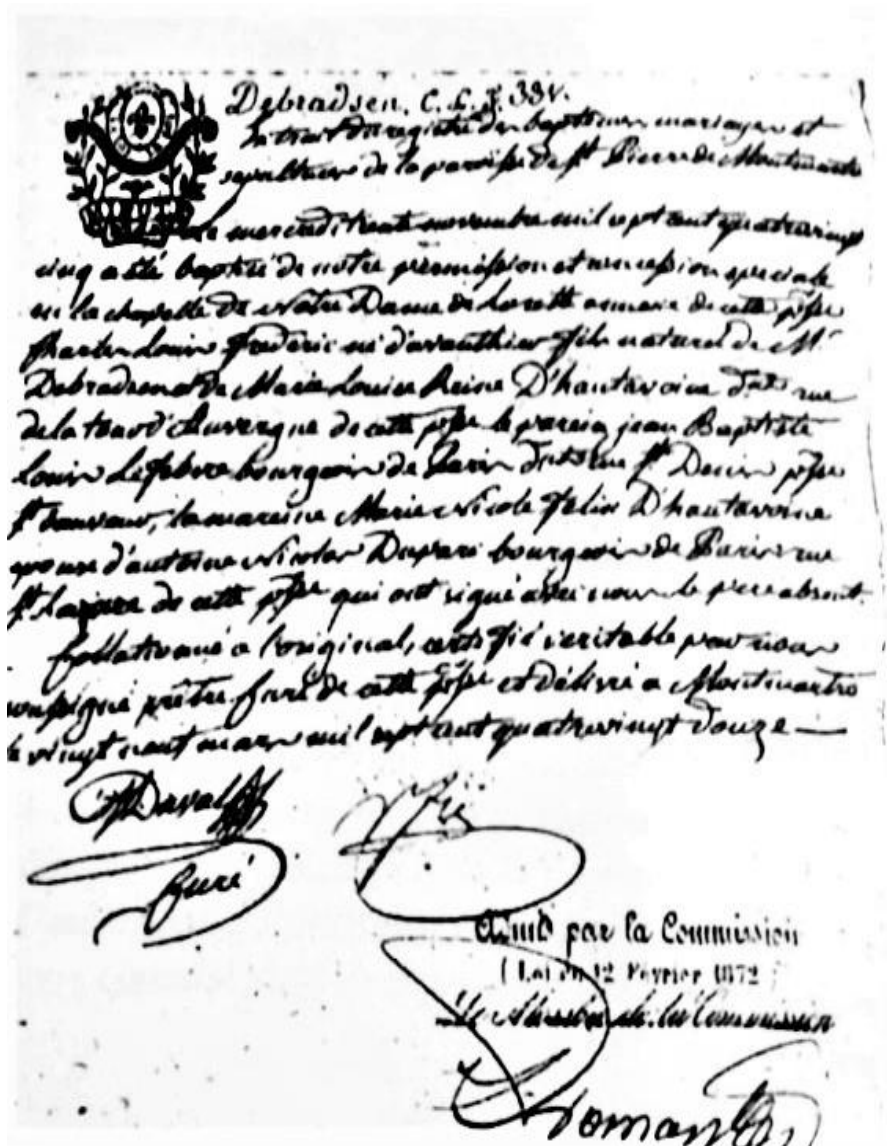 Debradsen. C. L. F. 33V.
Extrait du registre des baptemes mariages et
sepultures de la paroisse de St Pierre de Montmartre
Le mercredi trente novembre mil sept cent quatrevingt
cinq a été baptisé de notre permission et concession speciale
en la chapelle de Notre Dame de Lorette annexe de cette psse
Charles Louis Frederic né d'avanthier fils naturel de Mr
Debradsen et de Marie Louise Reine D'hautavoine rue
de la tour d'Auvergne de cette psse le parein jean Baptiste
Louis Lefebvre bourgeois de Paris rue St Denis psse
St Sauveur, la mareine Marie Nicole Felix D'hautavoine
epouse d'antoine Nicolas Dupare bourgeois de Paris rue
St Lazare de cette psse qui ont signé avec nous le pere absent.
Collationné a l'original, certifié veritable par nous
soussigné prêtre Curé de cette psse et délivré a Montmartre
le vingt neuf mars mil sept cent quatrevingt douze
Curé
Admis par la Commission
(Loi du 12 Février 1872)
Le Membre de la Commission